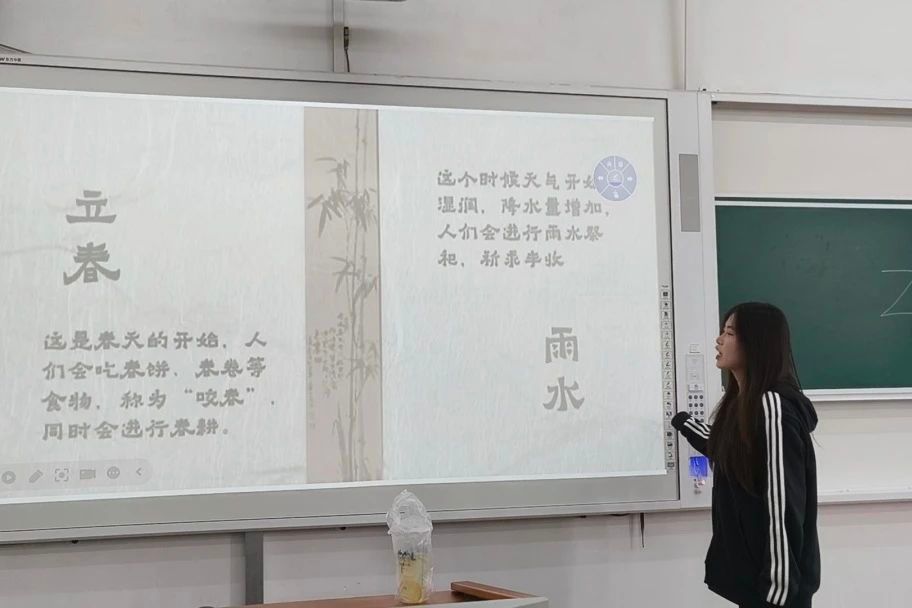 立
春
这是春天的开始，人
们会吃春饼、春卷等
食物，称为“咬春”，
同时会进行春耕。
这个时候天气开始
湿润，降水量增加，
人们会进行雨水祭
祀，祈求丰收
雨
水